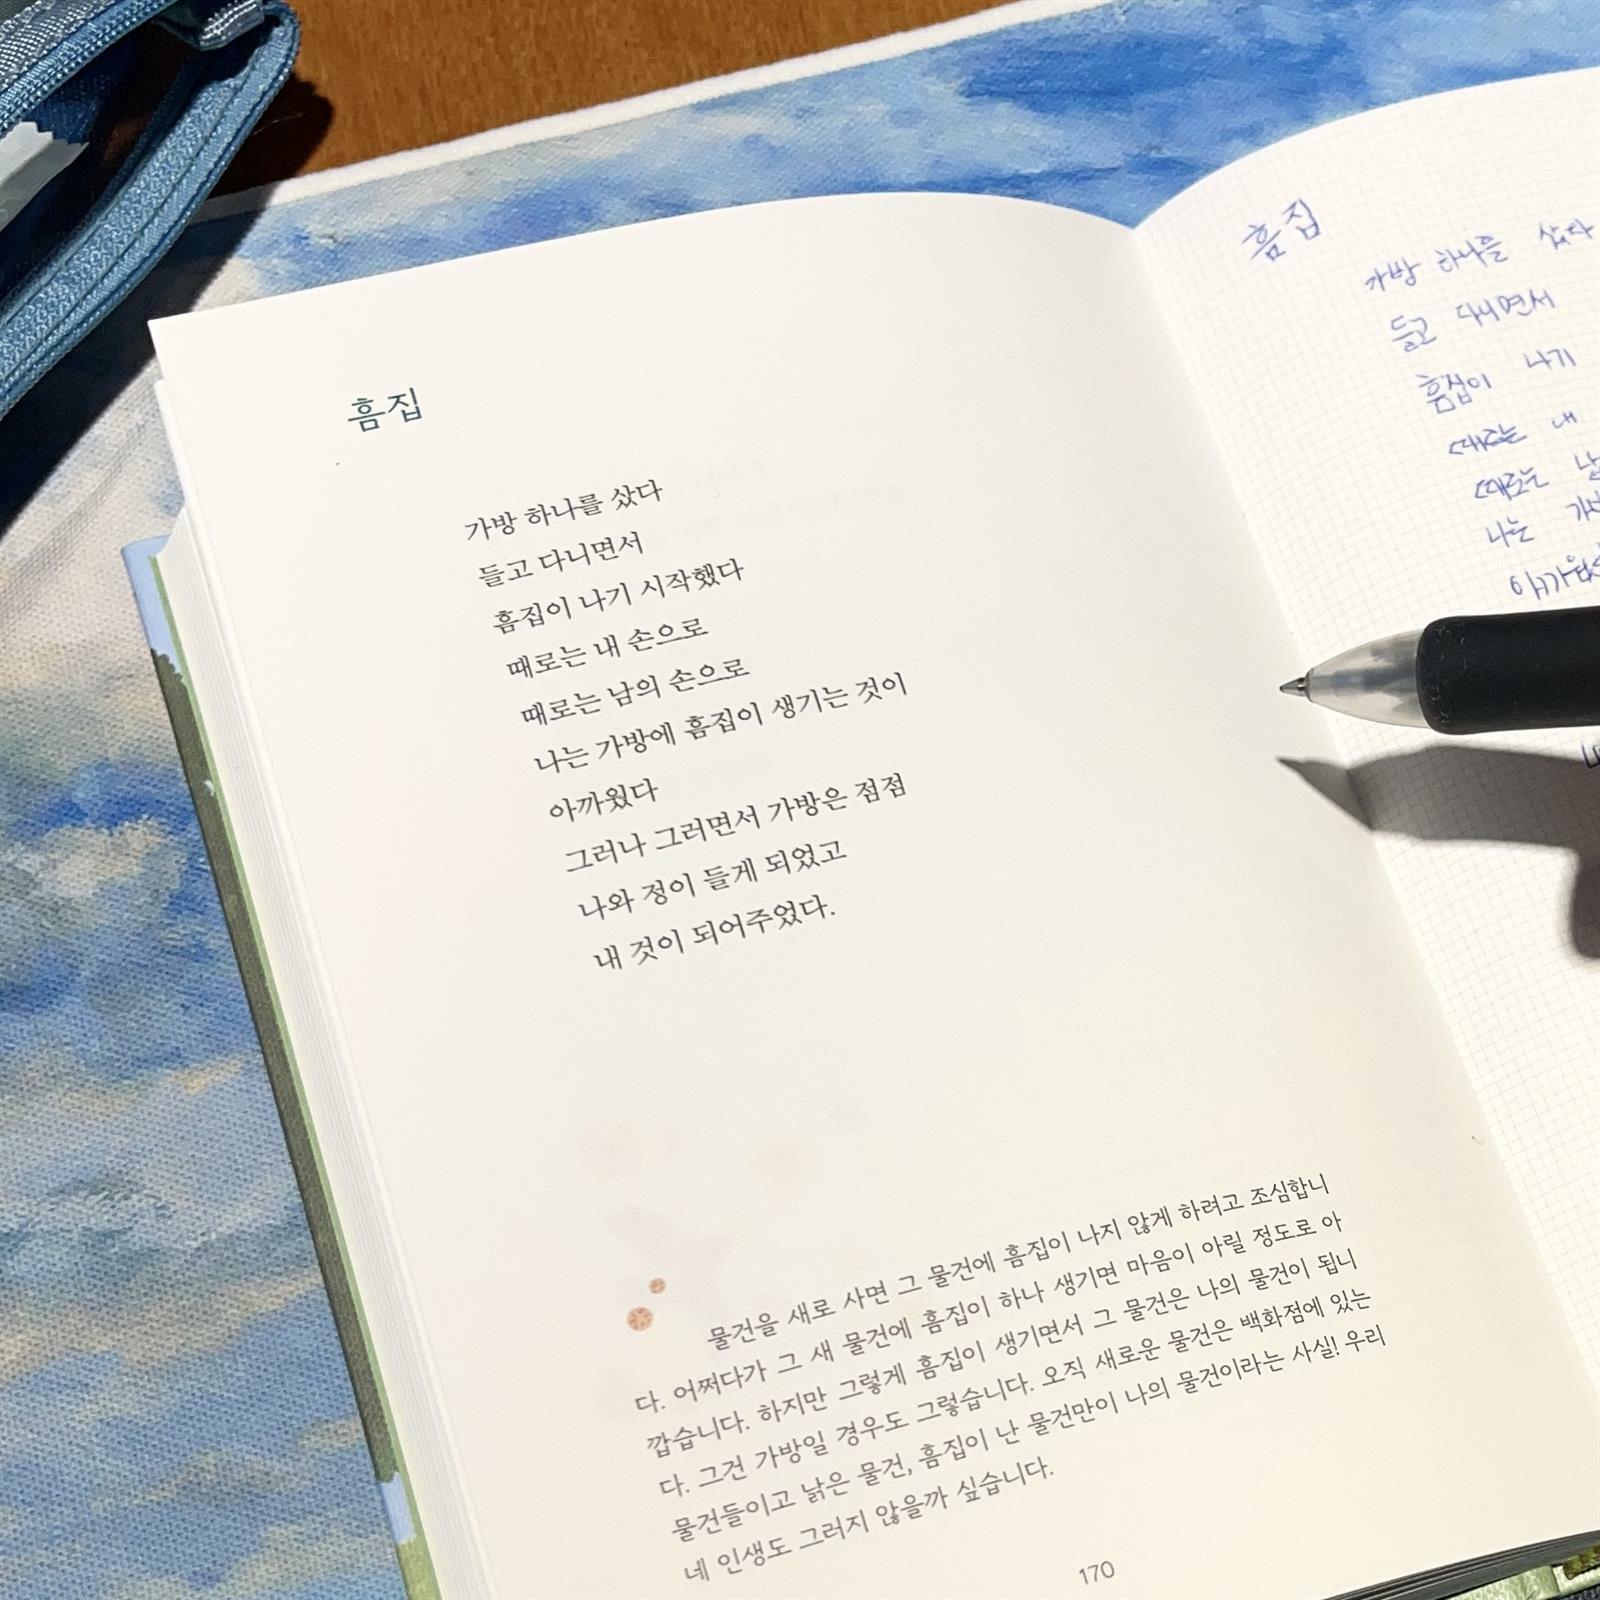 흠집
가방 하나를 샀다
들고 다니면서
흠집이 나기 시작했다
때로는 내 손으로
때로는 남의 손으로
나는 가방에 흠집이 생기는 것이
아까웠다
그러나 그러면서 가방은 점점
나와 정이 들게 되었고
내 것이 되어주었다.
물건을 새로 사면 그 물건에 흠집이 나지 않게 하려고 조심합니
다. 어쩌다가 그 새 물건에 흠집이 하나 생기면 마음이 아릴 정도로 아
깝습니다. 하지만 그렇게 흠집이 생기면서 그 물건은 나의 물건이 됩니
다. 그건 가방일 경우도 그렇습니다. 오직 새로운 물건은 백화점에 있는
물건들이고 낡은 물건, 흠집이 난 물건만이 나의 물건이라는 사실! 우리
네 인생도 그러지 않을까 싶습니다.
170
흠집
가방 하나를 샀다
들고 다니면서
흠집이 나기
때로는 내
때로는
나는